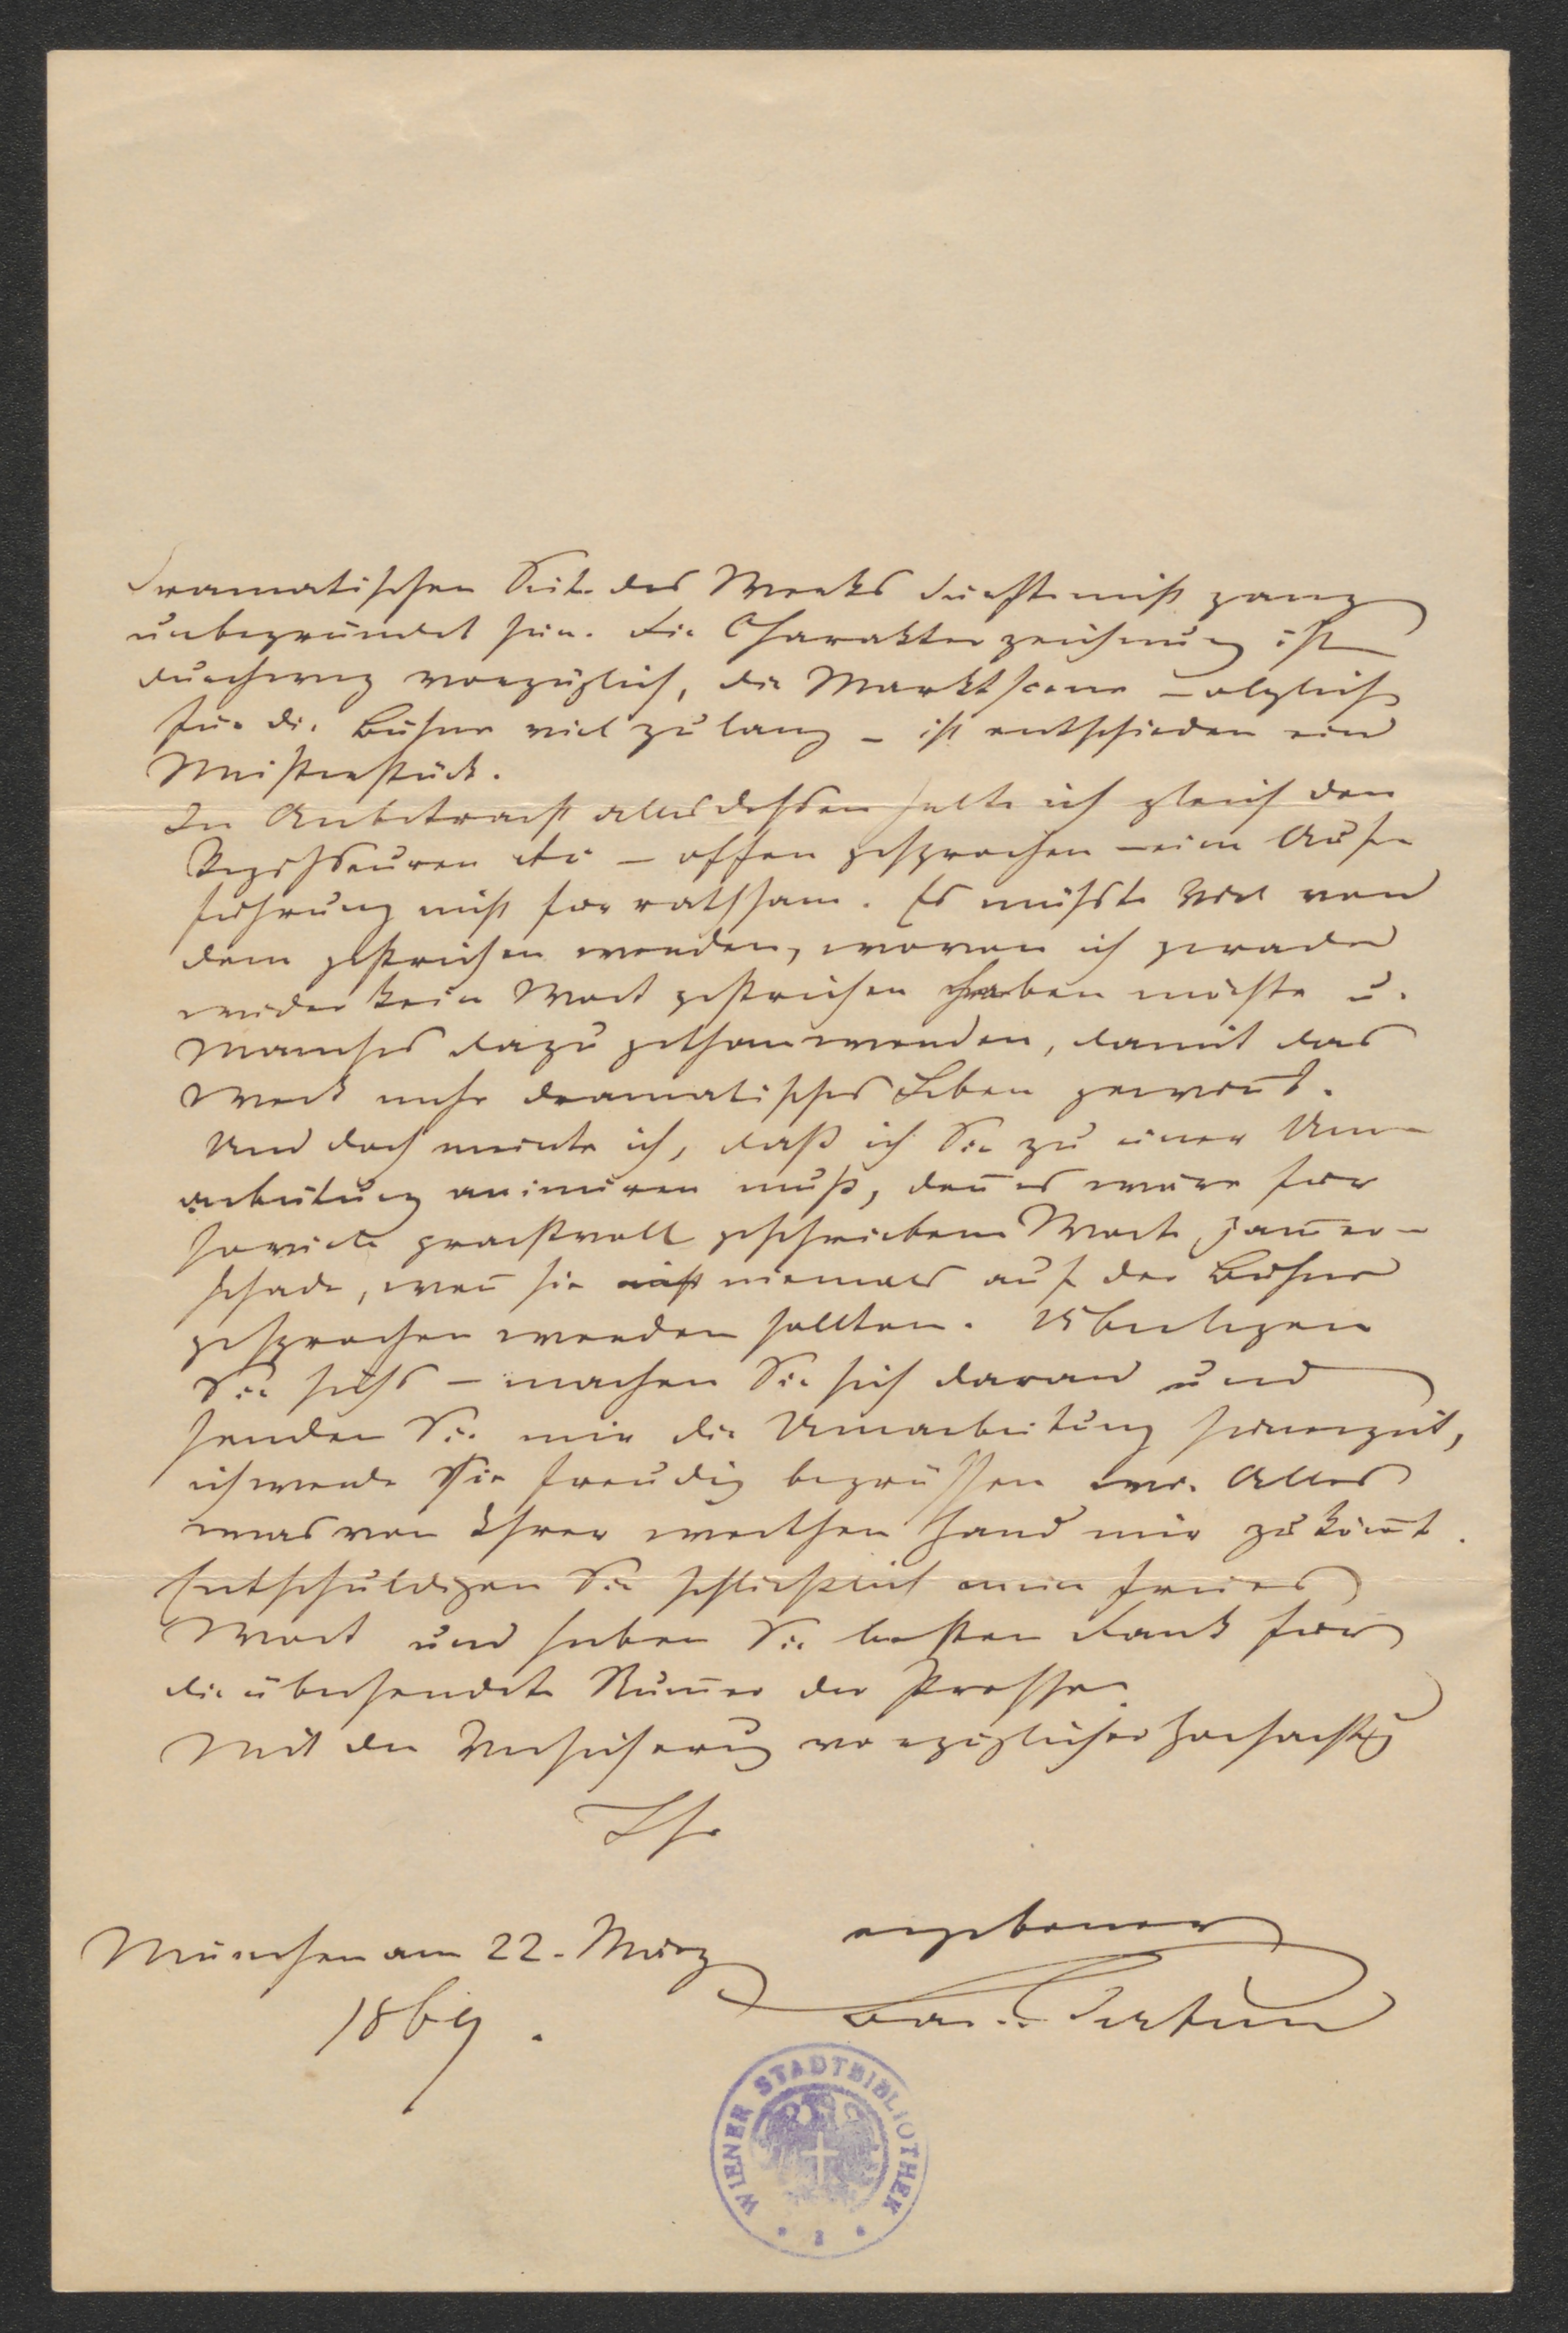 dramatischen Seite des Werks dürfte nicht ganz
unbegründet sein. Die Charakterzeichnung ist
durchweg vorzüglich, die Marktscene – obgleich
für die Bühne viel zu lang – ist entschieden ein
Meisterstück.
In Anbetracht alles dessen halte ich gleich den
Regisseuren – offen gesprochen – eine Auf-
führung nicht für rathsam. Es müßte Viel von
dem gestrichen werden, wovon ich gerade
wieder kein Wort gestrichen haben möchte u.
Manches dazu gethan werden, damit das
Werk mehr dramatisches Leben gewint.
Und doch meinte ich, daß ich Sie zu einer Um-
arbeitung animiren muß, den̄ es wäre für
soviele prachtvoll geschriebene Worte jam̄er-
schade, wen̄ sie niemals auf der Bühne
gesprochen werden sollten.
Sie – machen Sie sich daran und
senden Sie mir die Umarbeitung seinerzeit,
ich werde Sie freudig begrüssen wie Alles
was von Ihrer werthen Hand mir zukom̄t.
Entschuldigen Sie schließlich mein freies
Wort und haben Sie besten Dank für
die übersendete Num̄er der Presse.
Mit der Versicherung vorzüglicher Hochachtg
Ihr
ergebener
München am 22. März
1869.
WIENER STADTBIBLIOTHEK